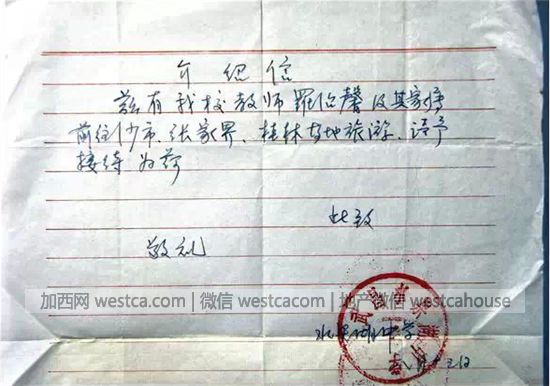 介绍信
兹有我校教师罗伯馨及其家
前往沙市、张家界、桂林等地旅游、请予
接待为荷
此致
敬礼
加西网 westca.com | 微信 westcacom | 地产微信 westcahouse
武
水果湖中学